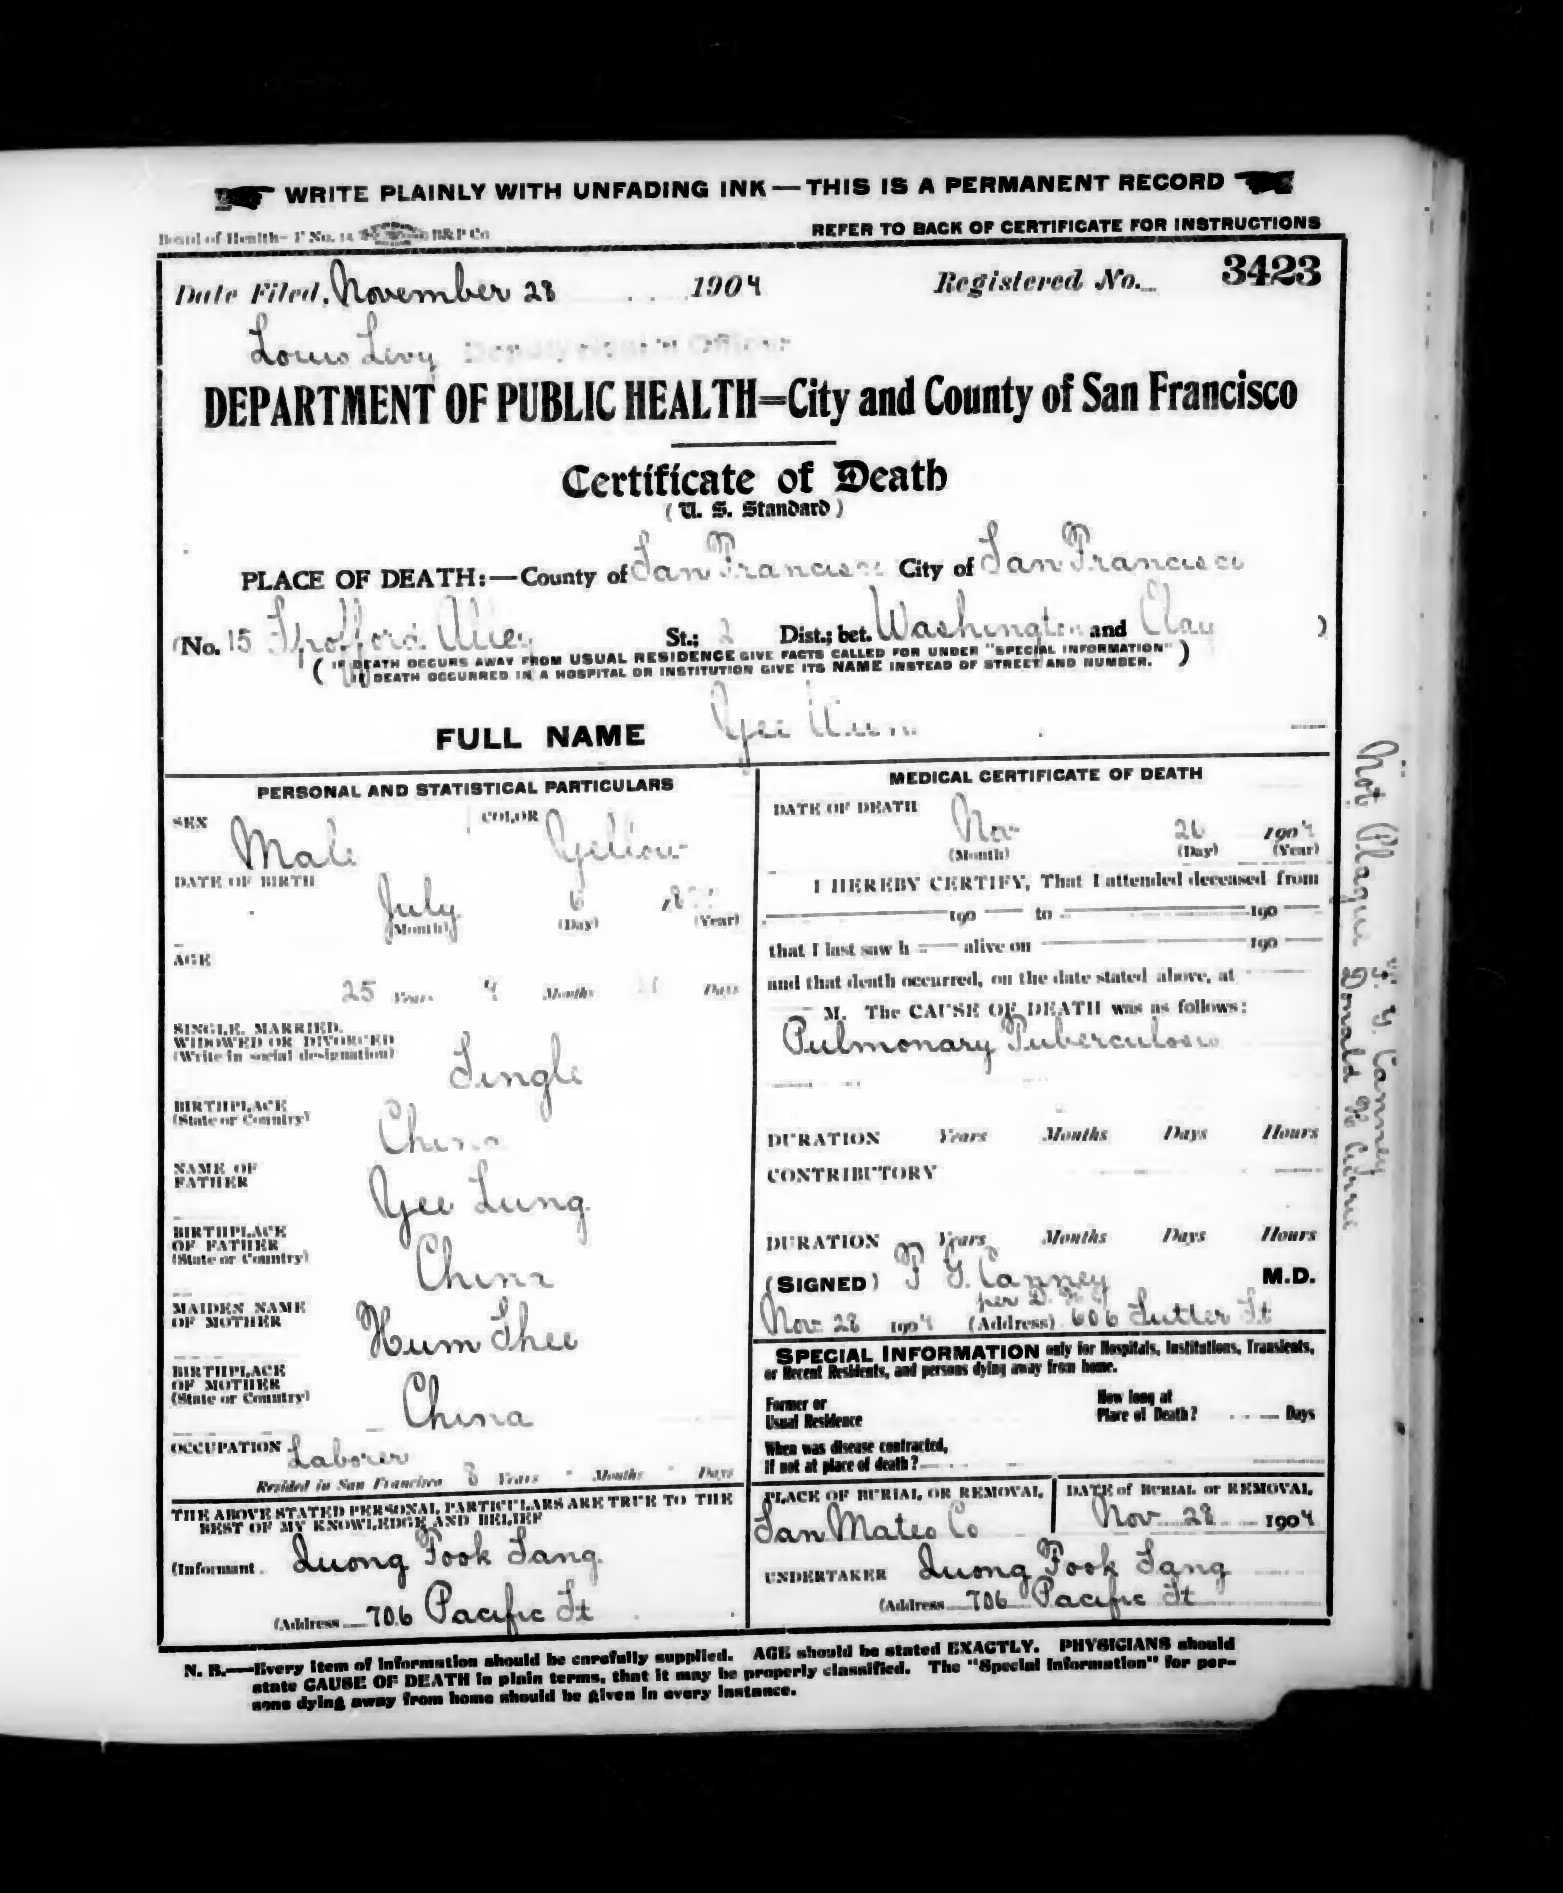 WRITE PLAINLY WITH UNFADING INK — THIS IS A PERMANENT RECORD
Board of Health—F No. 14 B&P Co
REFER TO BACK OF CERTIFICATE FOR INSTRUCTIONS
Date Filed, November 28 1904 Registered No. 3423
Louis Levy Deputy Health Officer
DEPARTMENT OF PUBLIC HEALTH=City and County of San Francisco
Certificate of Death
(U. S. Standard)
PLACE OF DEATH:—County of San Francisco City of San Francisco
(No. 15 Spofford Alley St.; 2 Dist.; bet. Washington and Clay )
( IF DEATH OCCURS AWAY FROM USUAL RESIDENCE GIVE FACTS CALLED FOR UNDER "SPECIAL INFORMATION" )
IF DEATH OCCURRED IN A HOSPITAL OR INSTITUTION GIVE ITS NAME INSTEAD OF STREET AND NUMBER.
FULL NAME Yee
PERSONAL AND STATISTICAL PARTICULARS
SEX Male COLOR Yellow
DATE OF BIRTH
July 6 18
(Month) (Day) (Year)
AGE
25 Years 4 Months Days
SINGLE, MARRIED,
WIDOWED OR DIVORCED
(Write in social designation)
Single
BIRTHPLACE
(State or Country)
China
NAME OF
FATHER
Yee Lung
BIRTHPLACE
OF FATHER
(State or Country)
China
MAIDEN NAME
OF MOTHER
Hum Shee
BIRTHPLACE
OF MOTHER
(State or Country)
China
OCCUPATION Laborer
Resided in San Francisco 8 Years - Months - Days
THE ABOVE STATED PERSONAL PARTICULARS ARE TRUE TO THE
BEST OF MY KNOWLEDGE AND BELIEF
(Informant Quong Fook Sang.
(Address 706 Pacific St
MEDICAL CERTIFICATE OF DEATH
DATE OF DEATH
Nov 26 1904
(Month) (Day) (Year)
I HEREBY CERTIFY, That I attended deceased from
190 to 190
that I last saw h alive on 190
and that death occurred, on the date stated above, at
M. The CAUSE OF DEATH was as follows:
Pulmonary Tuberculosis
DURATION Years Months Days Hours
CONTRIBUTORY
DURATION Years Months Days Hours
(SIGNED) P G Canney M.D.
per D. H. C
Nov 28 1904 (Address) 606 Sutter St
SPECIAL INFORMATION only for Hospitals, Institutions, Transients,
or Recent Residents, and persons dying away from home.
Former or
Usual Residence
How long at
Place of Death? Days
When was disease contracted,
If not at place of death?
PLACE OF BURIAL OR REMOVAL
San Mateo Co
DATE of BURIAL or REMOVAL
Nov 28 1904
UNDERTAKER Quong Fook Sang
(Address 706 Pacific St
N. B.—Every item of information should be carefully supplied. AGE should be stated EXACTLY. PHYSICIANS should
state CAUSE OF DEATH in plain terms, that it may be properly classified. The "Special Information" for per-
sons dying away from home should be given in every instance.
Not Plague G. Canney
Donald H Currie